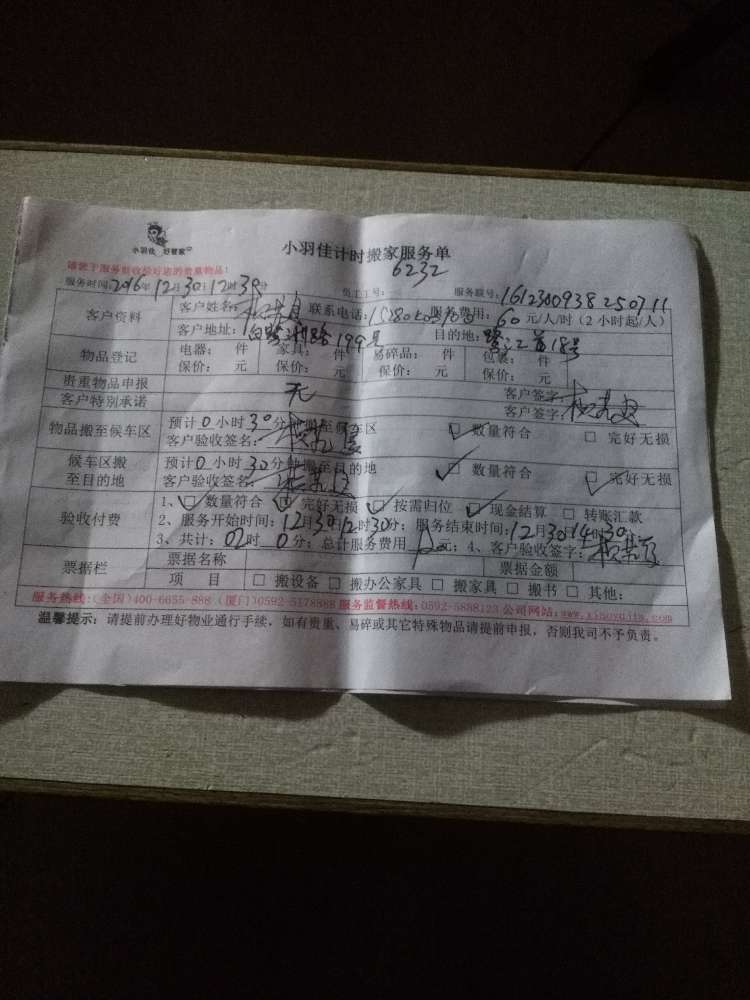 小羽佳 好管家
小羽佳计时搬家服务单
6232
请在于服务前收验好您的贵重物品!
服务时间:2016年12月30日12时30分 员工工号: 服务联号:1612300938250711
客户资料 客户姓名: 联系电话: 服务费用:60元/人/时(2小时起/人)
客户地址: 199号 目的地: 18号
物品登记 电器: 件 家具: 件 易碎品: 件 包装: 件
保价: 元 保价: 元 保价: 元 保价: 元
贵重物品申报 无 客户签字:
客户特别承诺 客户签字:
物品搬至候车区 预计0小时30分钟搬至候车区 □ 数量符合 □ 完好无损
客户验收签名:
候车区搬至目的地 预计0小时30分钟搬至目的地 □ 数量符合 □ 完好无损
客户验收签名:
验收付费 1、□ 数量符合 □ 完好无损 □ 按需归位 □ 现金结算 □ 转账汇款
2、服务开始时间:12月30日12时30分;服务结束时间:12月30日14时30分
3、共计:02时0分;总计服务费用 元;4、客户验收签字:
票据栏 票据名称 票据金额
项 目 □ 搬设备 □ 搬办公家具 □ 搬家具 □ 搬书 □ 其他:
服务热线:(全国)400-6655-888 (厦门)0592-5178888 服务监督热线:0592-5888123 公司网站:www.xiaoyujia.com
温馨提示:请提前办理好物业通行手续,如有贵重、易碎或其它特殊物品请提前申报,否则我司不予负责。